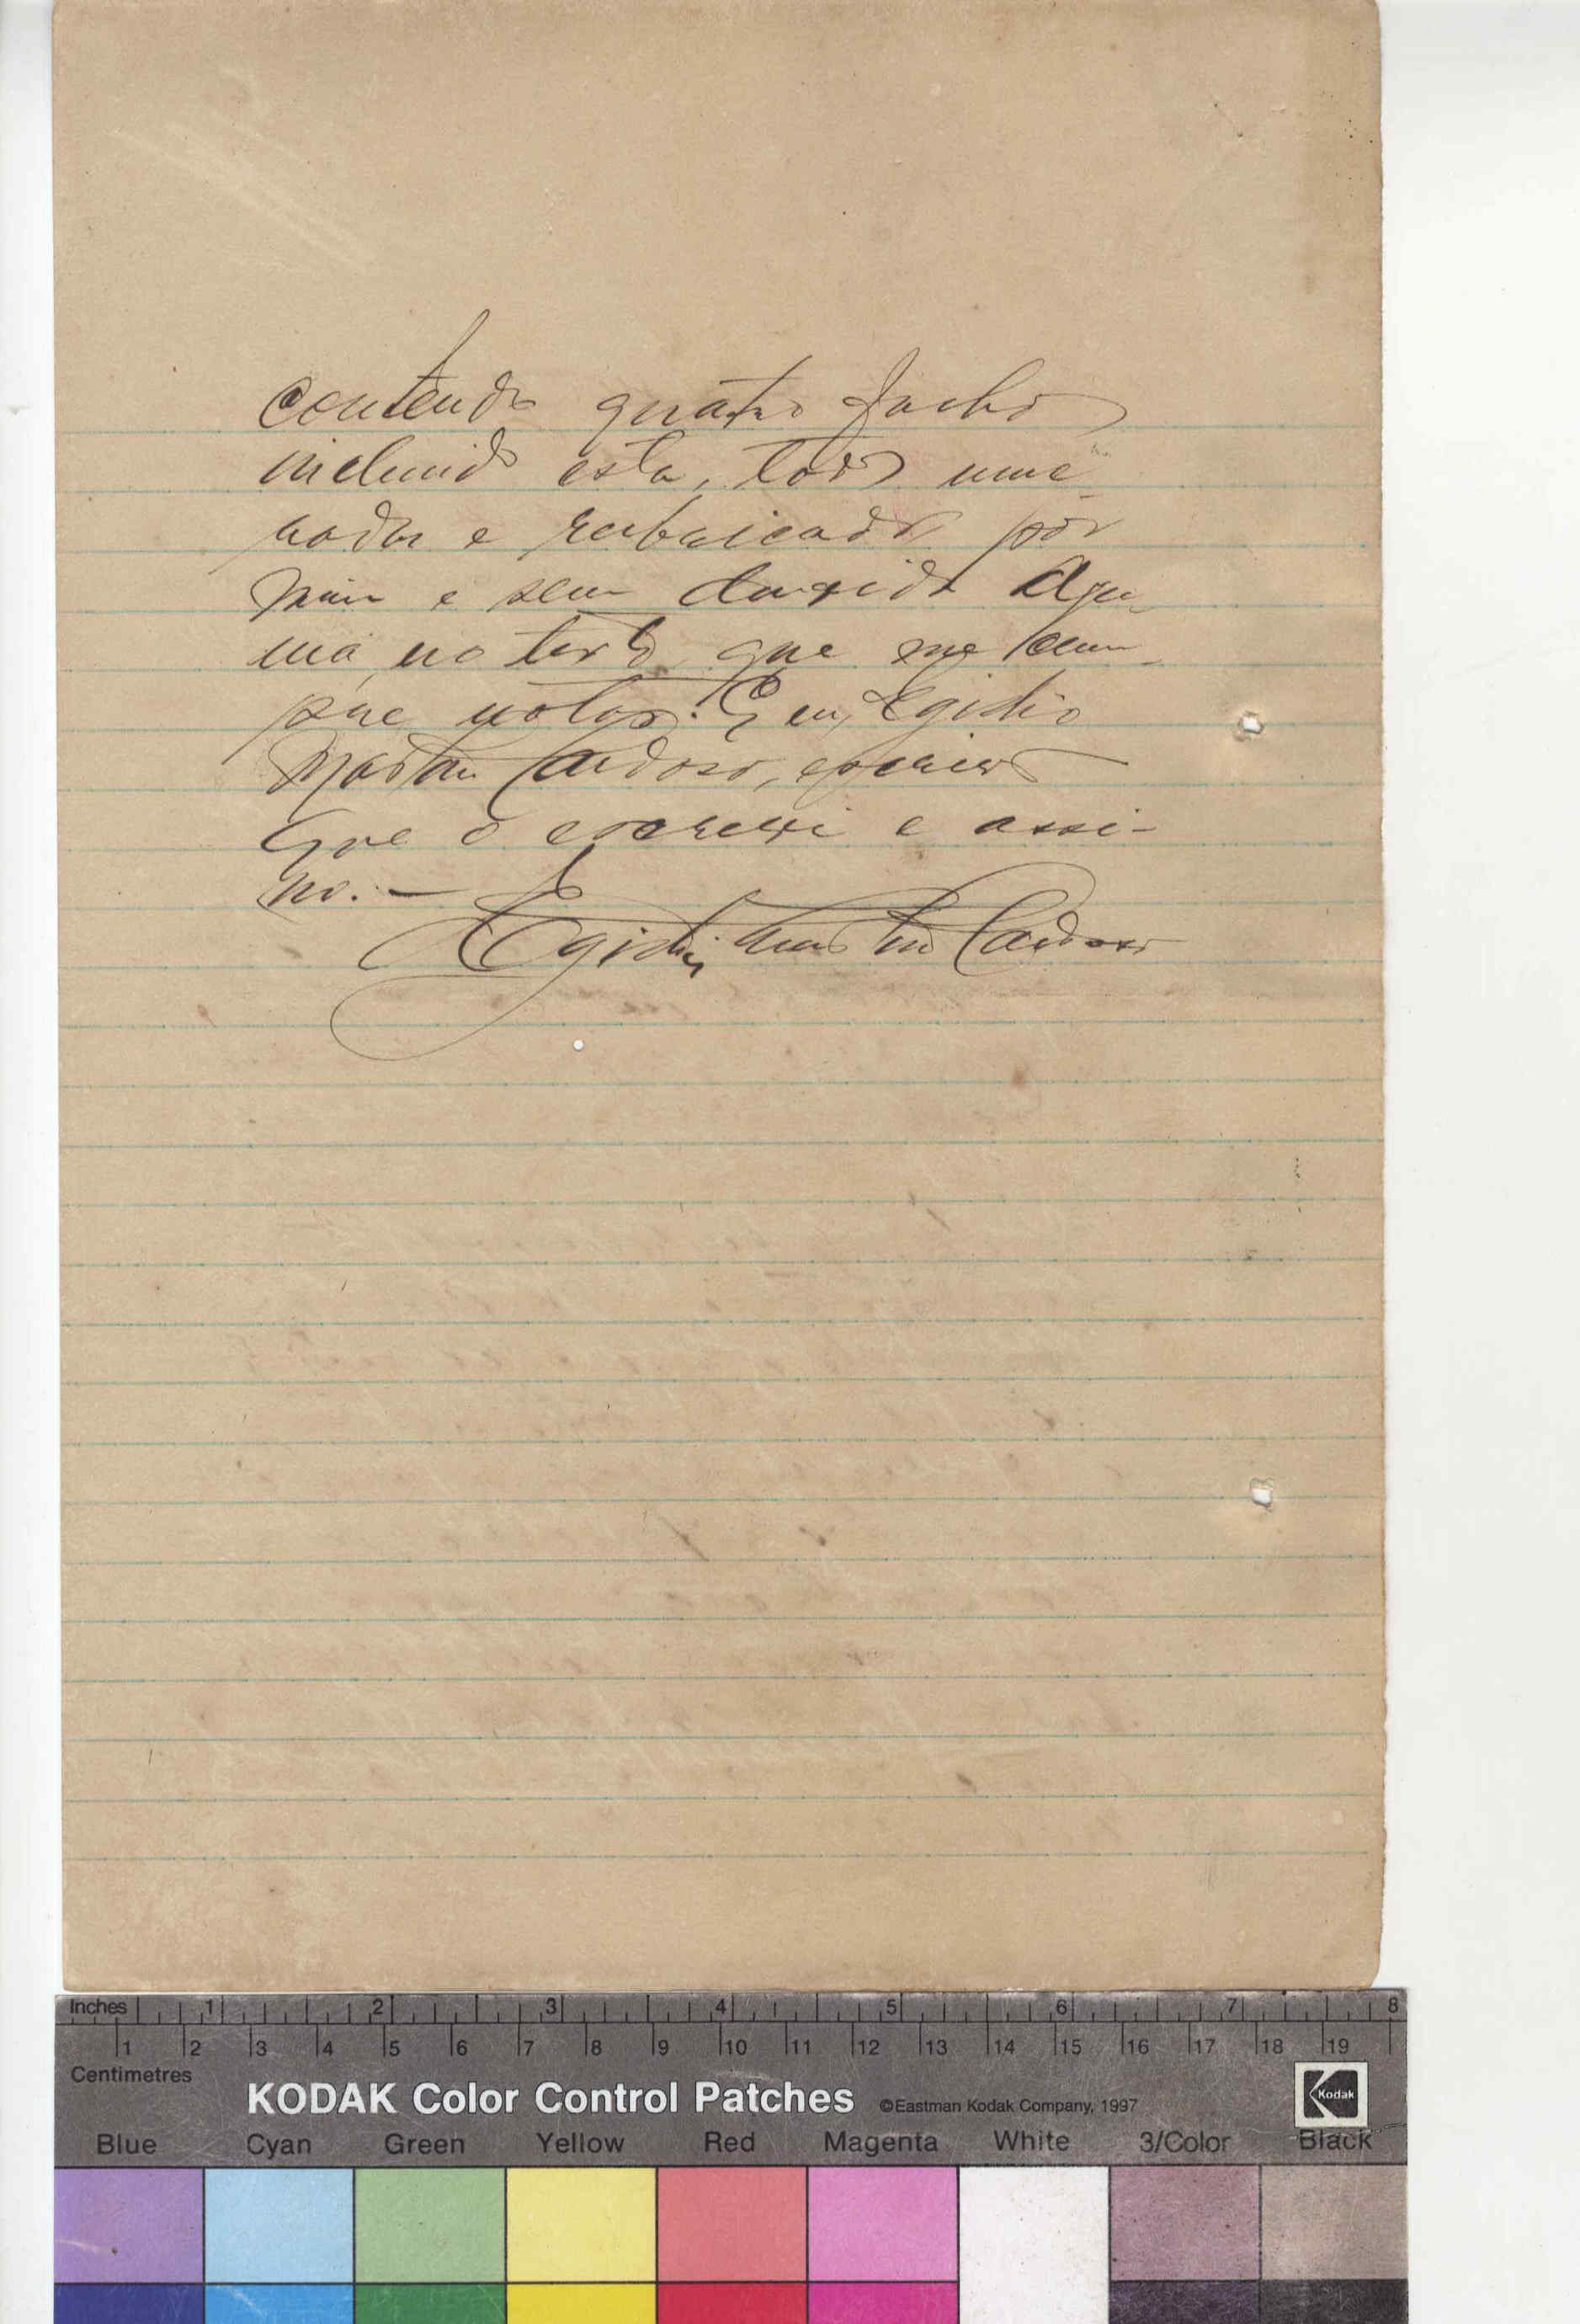 contendo quatro folhas
incluido esta, todas nume-
radas e rubricadas por
mim e sem duvida algu-
ma no texto que me cum-
pre notar. E eu, Egidio
Martins Cardoso, escrivão
que o escrevi e assi-
no. —
Egidio Martins Cardoso
Inches 1 2 3 4 5 6 7 8
1 2 3 4 5 6 7 8 9 10 11 12 13 14 15 16 17 18 19
Centimetres
KODAK Color Control Patches ©Eastman Kodak Company, 1997 Kodak
Blue Cyan Green Yellow Red Magenta White 3/Color Black